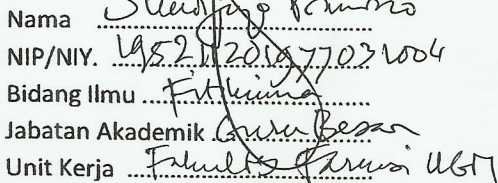 Nama
NIP/NIY. 195211201977031004
Bidang Ilmu Fitokimia
Jabatan Akademik Guru Besar
Unit Kerja Fakultas Farmasi UGM